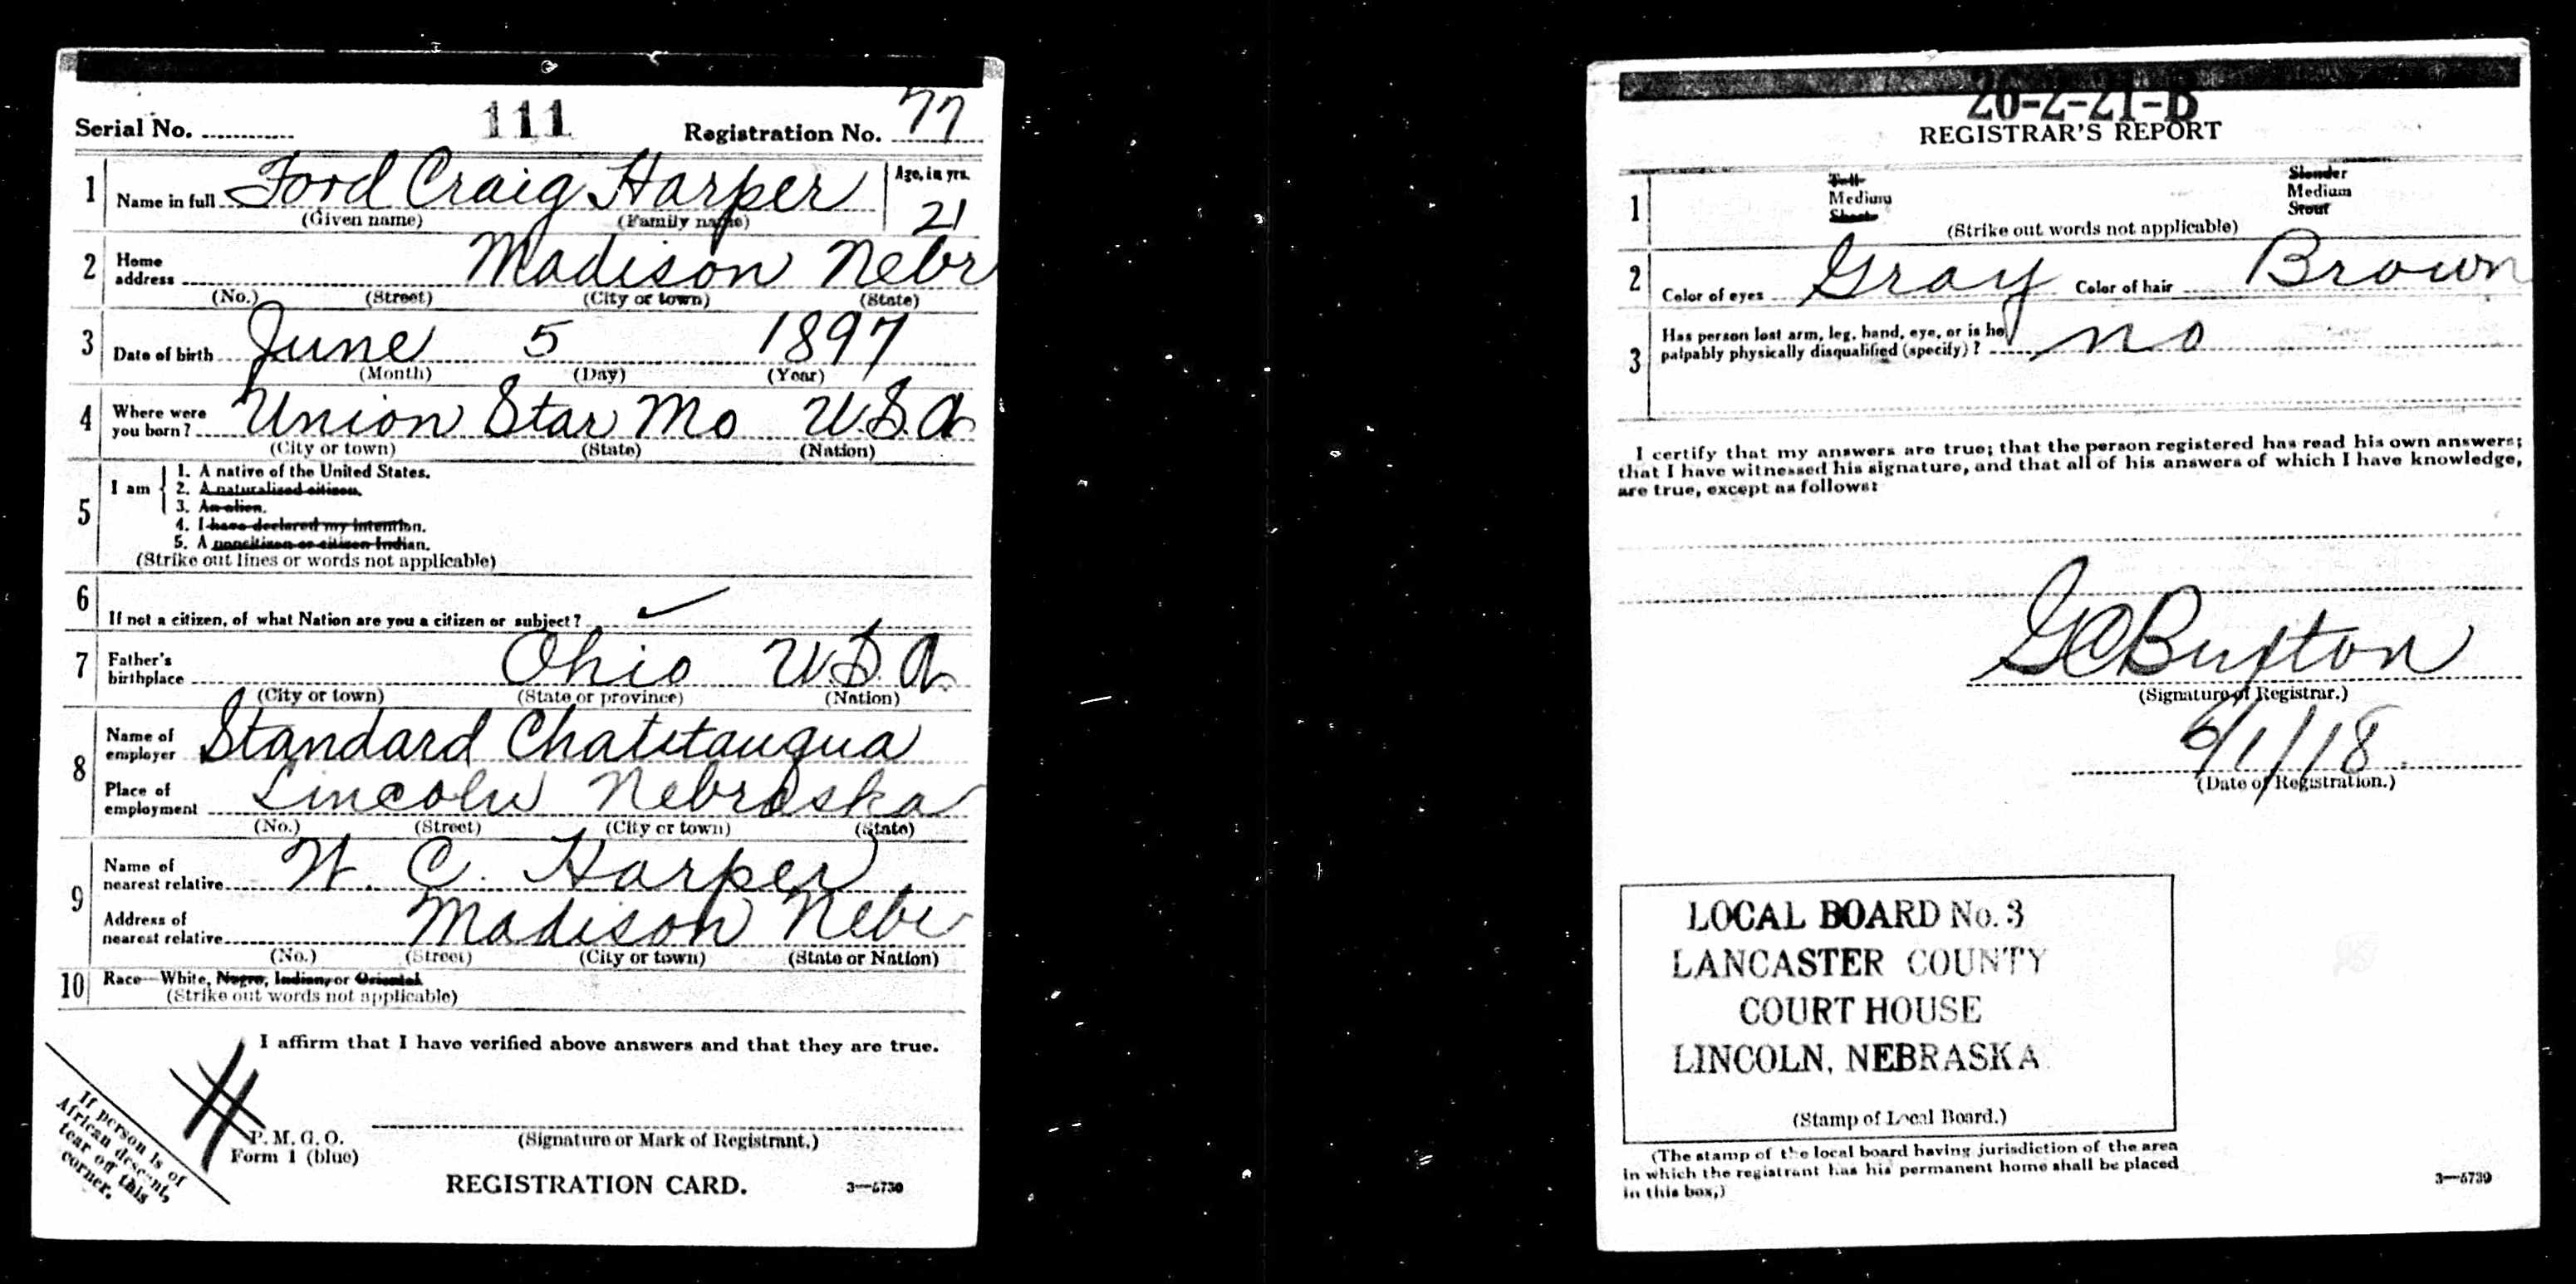 Serial No. 111 Registration No. 77
1 Name in full Ford Craig Harper Age, in yrs. 21
(Given name) (Family name)
2 Home address Madison Nebr
(No.) (Street) (City or town) (State)
3 Date of birth June 5 1897
(Month) (Day) (Year)
4 Where were you born? Union Star Mo U.S.A.
(City or town) (State) (Nation)
5 I am
1. A native of the United States.
2. A naturalized citizen.
3. An alien.
4. I have declared my intention.
5. A noncitizen or citizen Indian.
(Strike out lines or words not applicable)
6 If not a citizen, of what Nation are you a citizen or subject? ✓
7 Father's birthplace Ohio U.S.A.
(City or town) (State or province) (Nation)
8 Name of employer Standard Chatitauqua
Place of employment Lincoln Nebraska
(No.) (Street) (City or town) (State)
9 Name of nearest relative W. C. Harper
Address of nearest relative Madison Nebr
(No.) (Street) (City or town) (State or Nation)
10 Race—White, Negro, Indian, or Oriental
(Strike out words not applicable)
I affirm that I have verified above answers and that they are true.
P. M. G. O.
Form 1 (blue)
(Signature or Mark of Registrant.)
REGISTRATION CARD. 3—5739
If person is of
African descent,
tear off this
corner.
26-2-21-B
REGISTRAR'S REPORT
1 Tall Slender
Medium Medium
Short Stout
(Strike out words not applicable)
2 Color of eyes Gray Color of hair Brown
3 Has person lost arm, leg, hand, eye, or is he
palpably physically disqualified (specify)? no
I certify that my answers are true; that the person registered has read his own answers;
that I have witnessed his signature, and that all of his answers of which I have knowledge,
are true, except as follows:
G C Buxton
(Signature of Registrar.)
6/1/18
(Date of Registration.)
LOCAL BOARD No. 3
LANCASTER COUNTY
COURT HOUSE
LINCOLN, NEBRASKA
(Stamp of Local Board.)
(The stamp of the local board having jurisdiction of the area
in which the registrant has his permanent home shall be placed
in this box.)
3—5739